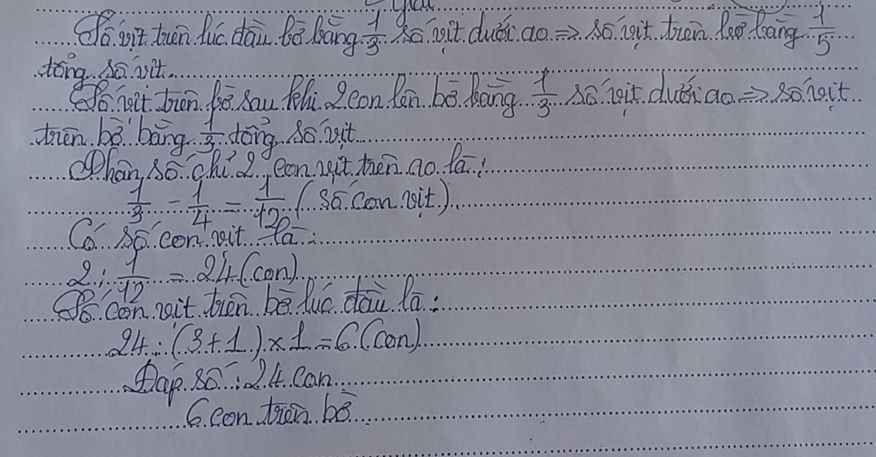 giải
Số vịt trên lúc đầu bờ bằng 1/3 số vịt dưới ao => số vịt trên bờ bằng 1/5
tổng số vịt.
Số vịt trên bờ sau khi 2 con lên bờ bằng 1/3 số vịt dưới ao => số vịt
trên bờ bằng 1/3 tổng số vịt
Phân số chỉ 2 con vịt trên ao là:
1/3 - 1/4 = 1/12 (số con vịt)
Có số con vịt là:
2 : 1/12 = 24 (con)
Số con vịt trên bờ lúc đầu là:
24 : (3+1) x 1 = 6 (con)
Đáp số: 24 con
6 con trên bờ